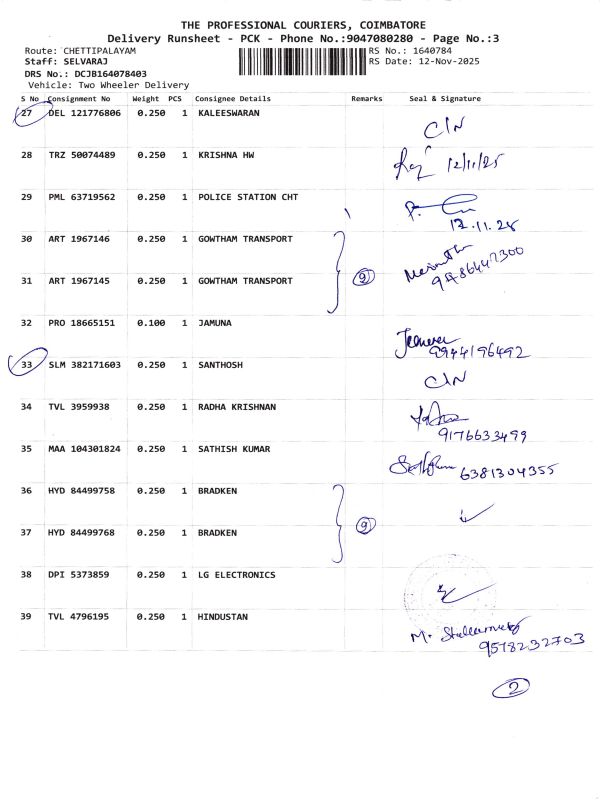 THE PROFESSIONAL COURIERS, COIMBATORE
Delivery Runsheet - PCK - Phone No.:9047080280 - Page No.:3
Route: CHETTIPALAYAM RS No.: 1640784
Staff: SELVARAJ RS Date: 12-Nov-2025
DRS No.: DCJB164078403
Vehicle: Two Wheeler Delivery
S No Consignment No Weight PCS Consignee Details Remarks Seal & Signature
27 DEL 121776806 0.250 1 KALEESWARAN C/N
28 TRZ 50074489 0.250 1 KRISHNA HW 12/11/25
29 PML 63719562 0.250 1 POLICE STATION CHT
12.11.25
30 ART 1967146 0.250 1 GOWTHAM TRANSPORT
31 ART 1967145 0.250 1 GOWTHAM TRANSPORT 2 9486447300
32 PRO 18665151 0.100 1 JAMUNA
9944196492
33 SLM 382171603 0.250 1 SANTHOSH C/N
34 TVL 3959938 0.250 1 RADHA KRISHNAN
9176633499
35 MAA 104301824 0.250 1 SATHISH KUMAR 6381304355
36 HYD 84499758 0.250 1 BRADKEN
37 HYD 84499768 0.250 1 BRADKEN
38 DPI 5373859 0.250 1 LG ELECTRONICS
39 TVL 4796195 0.250 1 HINDUSTAN
9578232703
2